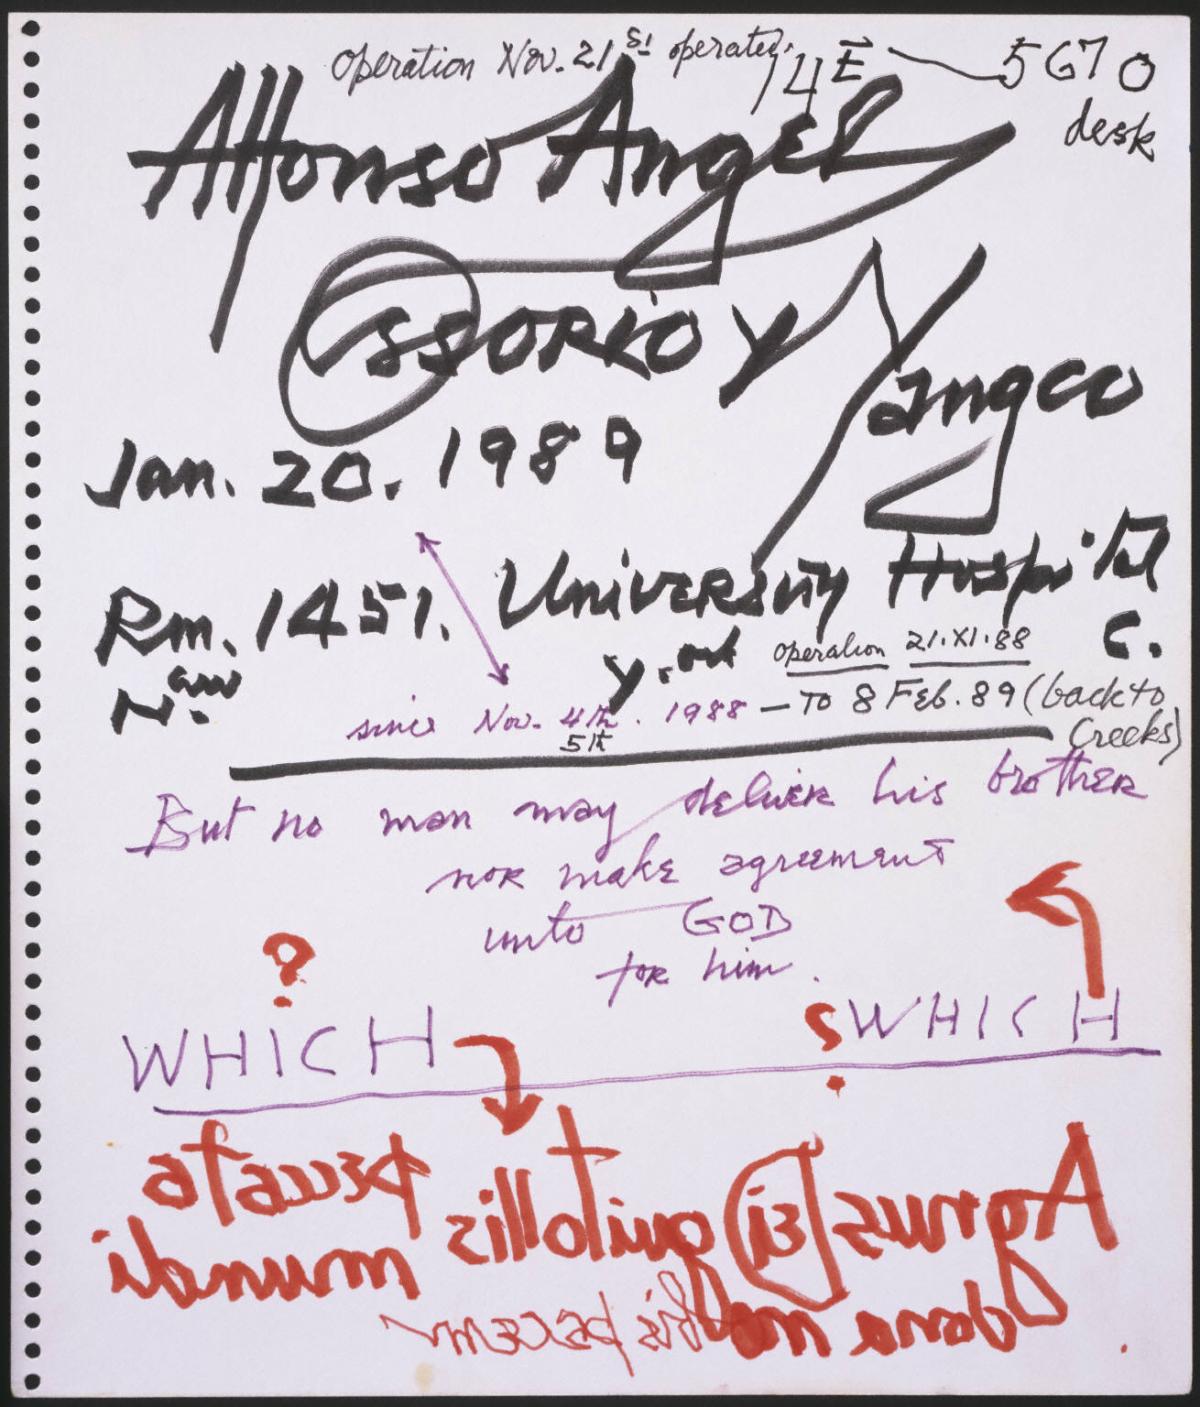 operation Nov. 21st operated. 14E — 5670
desk
Alfonso Angel
OSSORIO Y Yangco
Jan. 20. 1989
Rm. 1451. University Hospital
N. Y. operation 21.XI.88 C.
since Nov. 4th. 1988 — TO 8 Feb. 89 (back to
5th Creeks)
But no man may deliver his brother
nor make agreement
unto GOD
for him.
?
WHICH ? WHICH
Agnus Dei qui tollis peccata
mundi
dona nobis pacem